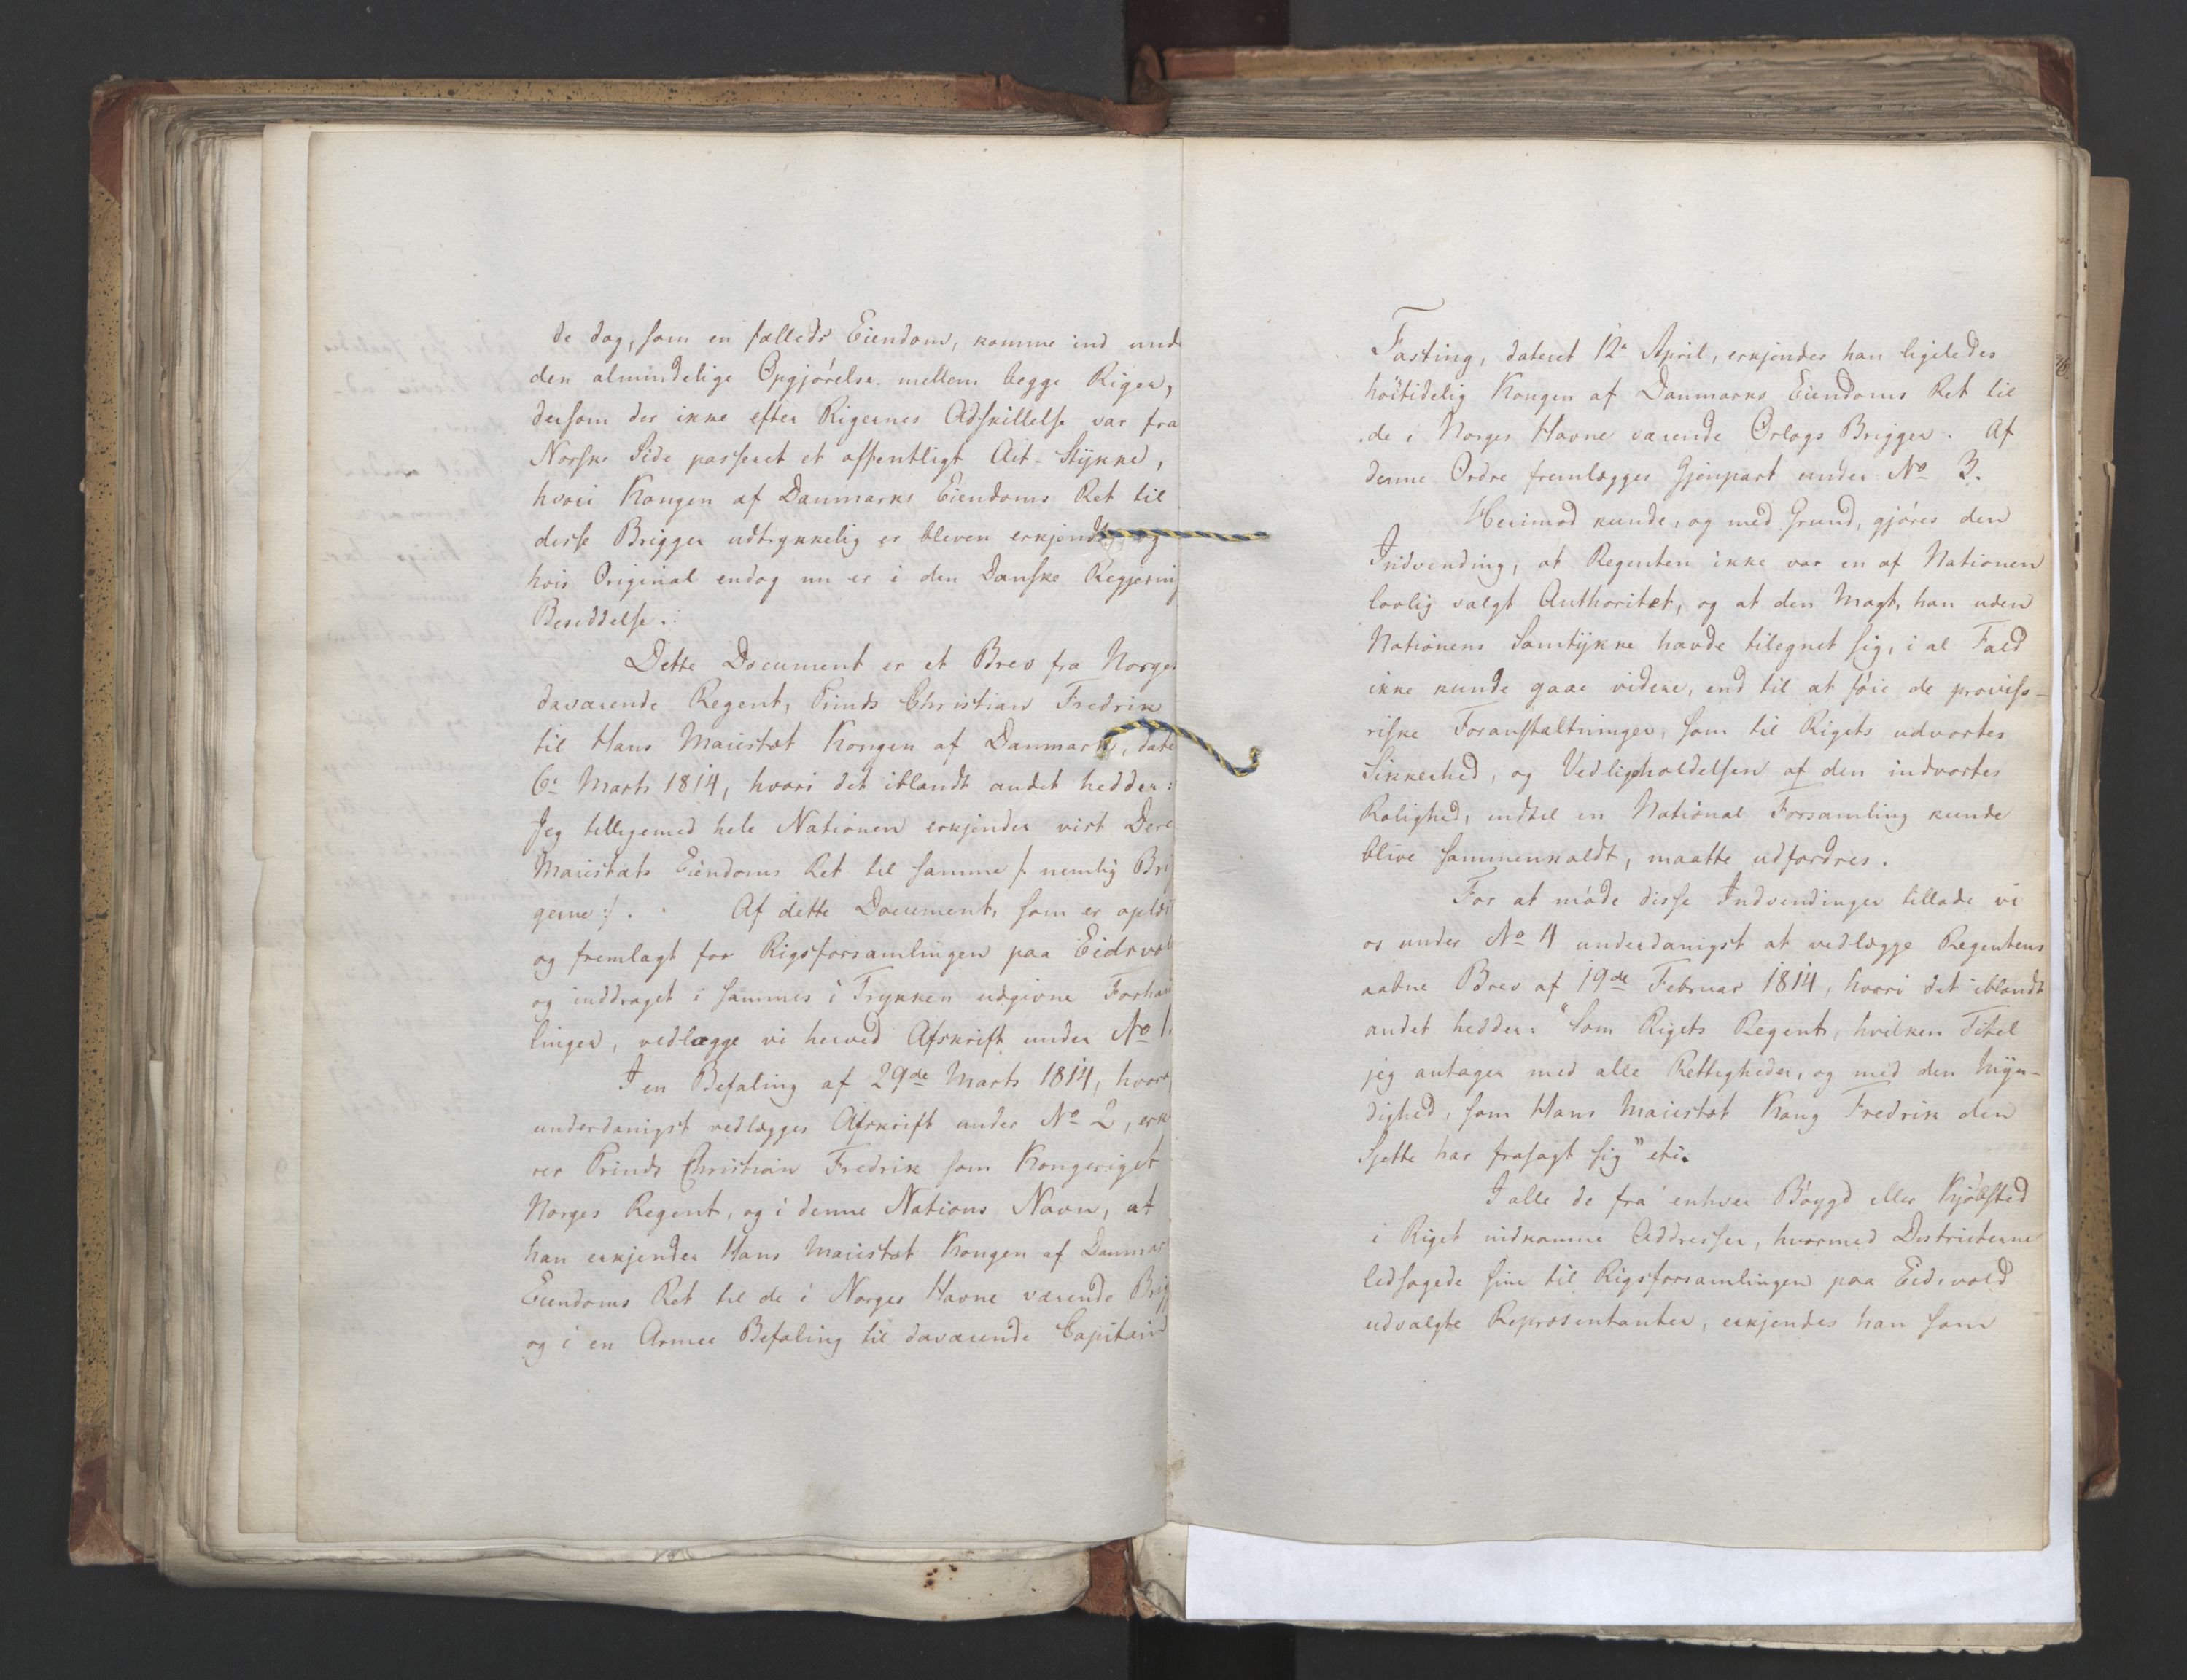 de dog, som en fælleds Eiendom, komme ind und
den almindelige Opgjörelse mellem begge Riger,
dersom der ikke efter Rigernes Adskillelse var fra
Norsk Side passeret et offentligt Act-Stykke,
hvori Kongen af Danmarks Eiendoms Ret til
disse Brigger udtrykkelig er bleven erkjendt, og
hvis Original endog nu er i den Danske Regjering
Besiddelse.
Dette Document er et Brev fra Norges
daværende Regent, Prinds Christian Fredrik
til Hans Maiestæt Kongen af Danmark, date
6te Marts 1814, hvori det iblandt andet hedder:
Jeg tilligemed hele Nationen erkjender vist Dere
Maiestæts Eiendoms Ret til samme /: nemlig Bri
gerne :/. Af dette Document, som er oplæs
og fremlagt for Rigsforsamlingen paa Eidsvol
og inddraget i sammes i Trykken udgivne Forhan
linger, vedlægge vi herved Afskrift under No 1.
I en Befaling af 29de Marts 1814, hvora
underdanigst vedlægges Afskrift under No 2, erklæ
rer Prinds Christian Fredrik som Kongeriget
Norges Regent, og i denne Nations Navn, at
han erkjender Hans Maiestæt Kongen af Danmar
Eiendoms Ret til de i Norges Havne værende Brig
og i en Armee Befaling til daværende Capitain
Fasting, dateret 12te April, erkjender han ligeledes
höitidelig Kongen af Danmarks Eiendoms Ret til
de i Norges Havne værende Orlogs Brigger. Af
denne Ordre fremlægges Gjenpart under No 3.
Herimod kunde, og med Grund, gjöres den
Indvending, at Regenten ikke var en af Nationen
lovlig valgt Authoritet, og at den Magt, han uden
Nationens Samtykke havde tilegnet sig, i al Fald
ikke kunde gaae videre, end til at föie de proviso-
riske Foranstaltninger, som til Rigets udvortes
Sikkerhed, og Vedligeholdelsen af den indvortes
Rolighed, indtil en National Forsamling kunde
blive sammenkaldt, maatte udfordres.
For at möde disse Indvendinger tillade vi
os under No 4 underdanigst at vedlægge Regentens
aabne Brev af 19de Februar 1814, hvori det iblandt
andet hedder: "Som Rigets Regent, hvilken Titel
jeg antager med alle Rettigheder, og med den Myn-
dighed, som Hans Maiestæt Kong Fredrik den
Sjette har frasagt sig" etc.
I alle de fra enhver Böygd eller Kjöbsted
i Riget indkomne Addresser, hvormed Districterne
ledsagede sine til Rigsforsamlingen paa Eidsvold
udvalgte Repræsentanter, erkjendes han som